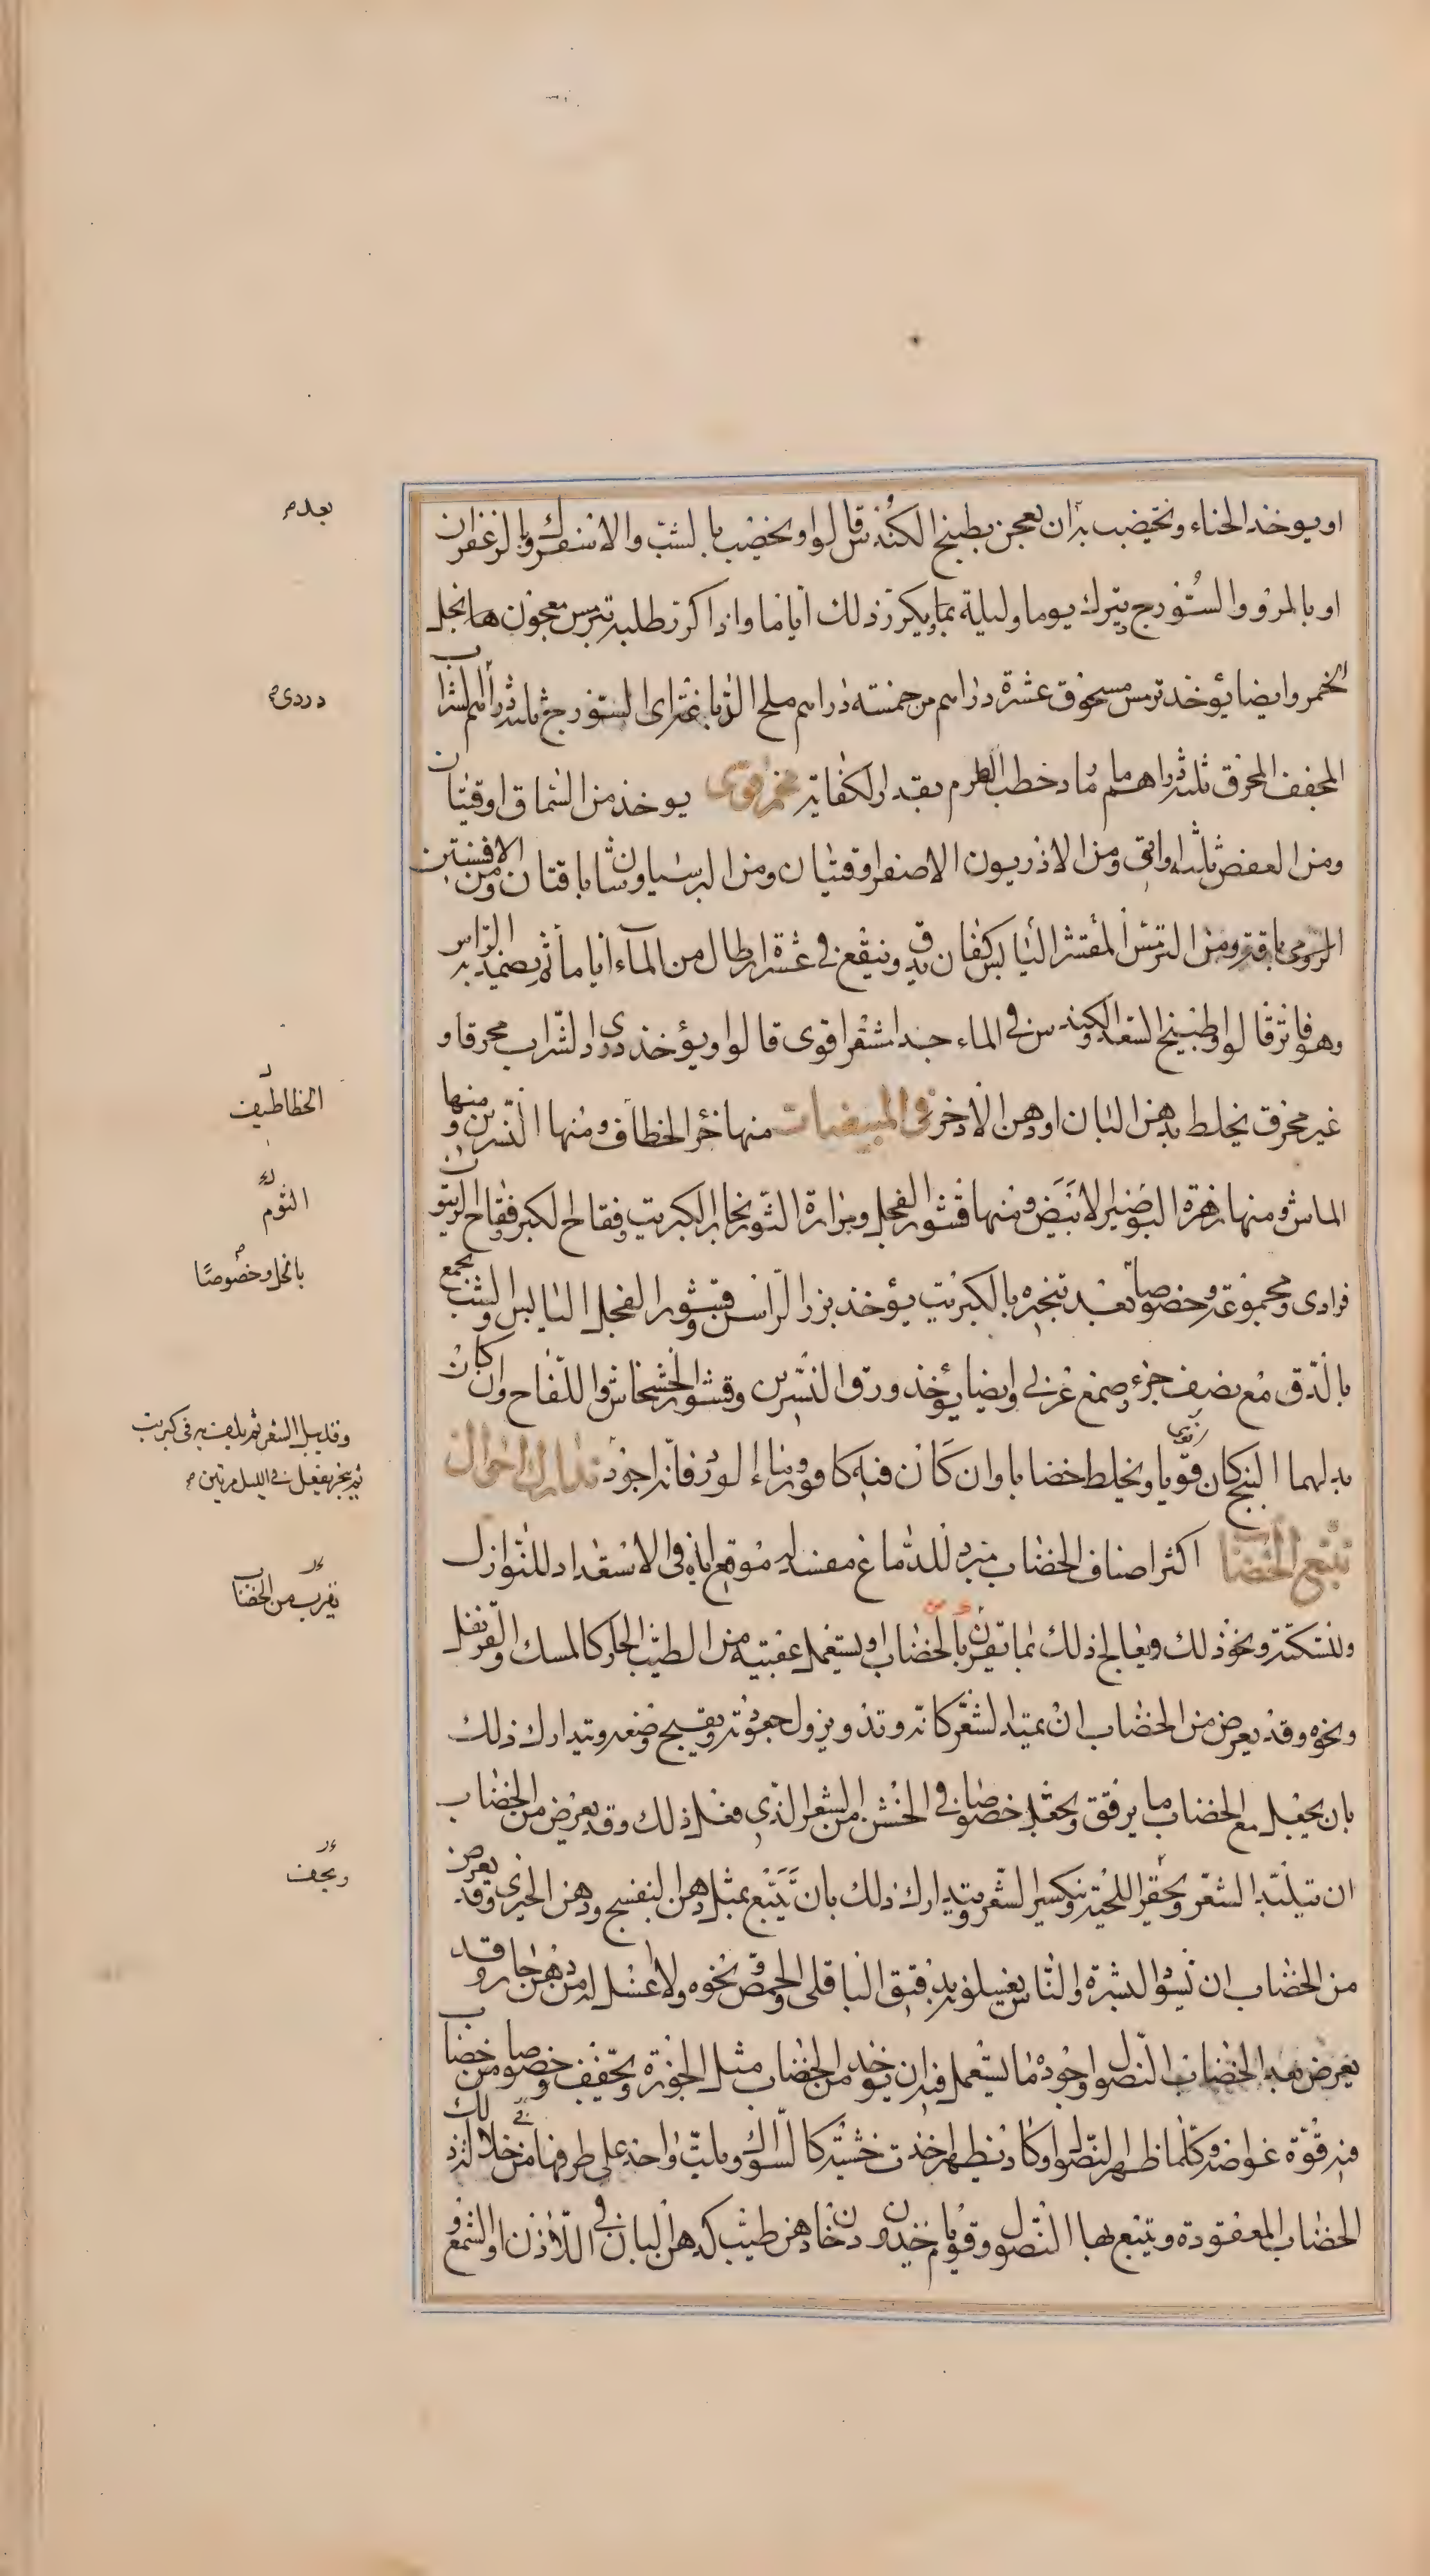 او يوخذ الحناء ويخضب به ان يعجن بطبيخ الكندس قالوا ويخضب بالشب والاسفرك والزعفران
او بالمر والسورج يترك يوما وليلة بما ويكرر ذلك اياما واذا كرر طلبه بترمس معجون بها بخل
الخمر وايضا يؤخذ ترمس مسحوق عشرة دراهم مر خمسة دراهم ملح الدباغة اى السورج ثلثة دراهم الشراب
المجفف المحرق ثلثة دراهم ماء رماد حطب الكرم بقدر الكفاية محمر قوى يوخذ من السماق اوقيتان
ومن العفص ثلثة اواقى ومن الاذريون الاصفر اوقيتان ومن البرسياوشان باقتان ومن الافسنتين
الرومى باقة ومن الترمس المقشر اليابس كفان يدق وينقع فى عشرة ارطال من الماء اياما ثم يضمد به الراس
وهو فاتر قالوا وطبيخ السعد والكندس فى الماء جيدا مشقر قوى قالوا ويؤخذ دردى الشراب محرقا و
غير محرق يخلط بدهن البان او دهن الاذخر فى المبيضات منها خرء الخطاف ومنها النسرين ومنها
الماش ومنها زهرة البوصير الابيض ومنها قشور الفجل ومرارة الثور بخار الكبريت وفقاح الكبر وفقاح الزيتون
فرادى ومجموعة وخصوصا بعد تبخيره بالكبريت يؤخذ بزر الراسن وقشور الفجل اليابس والشب يجمع
بالدق مع نصف جزء وصمغ عربى وايضا يؤخذ ورق النسرين وقشور الخشخاش واللفاح وان كان
بدلهما البنج كان قويا ويخلط خضابا وان كان فيه كافور وماء الورد فانه اجود تدارك احوال
تتبع الخضاب اكثر اصناف الخضاب مبرد للدماغ مفسد له موقع اياه فى الاستعداد للنوازل
والسكتة ونحو ذلك ويعالج ذلك بما يقرن بالخضاب او يستعمل عقيبه من الطيب الحار كالمسك والقرنفل
ونحوه وقد يعرض من الخضاب ان يمتد الشعر كانه وتد ويزول جعودته ويقبح وضعه ويتدارك ذلك
بان يجعل مع الخضاب ما يرقق ويجعد خصوصا فى الخشن من الشعر الذى فعل ذلك وقد يعرض من الخضاب
ان يتلبد الشعر ويحقر اللحية وينكسر الشعر ويتدارك ذلك بان يتبع بمثل دهن البنفسج ودهن الخيرى وقد يعرض
من الخضاب ان يسود البشرة والناس يغسلونه بدقيق الباقلى والحمص ونحوه ولا اغسل له من دهن حار وقد
يعرض بعد الخضاب النصول واجود ما يستعمل فيه ان يوخذ من الخضاب مثل الجوزة ويجفف وخصوصا من خضاب
فيه قوة غواصة وكلما ظهر النصول وكاد يظهر اخذت خشبة كالسواك وبلت واحد على طرفها من خلال تلك
الخضاب المعقودة ويتبع بها النصول وقوم ياخذون دخان دهن طيب كدهن البان فى اللاذن او الشمع و
بعد م
دردى م
الخطاطيف
الثوم
بالخل وخصوصا
وقد يبل الشعر ثم يلف به فى كبريت
ثم يبخر يفعل فى الليل مرتين م
يقرب من الخضاب
ويجف